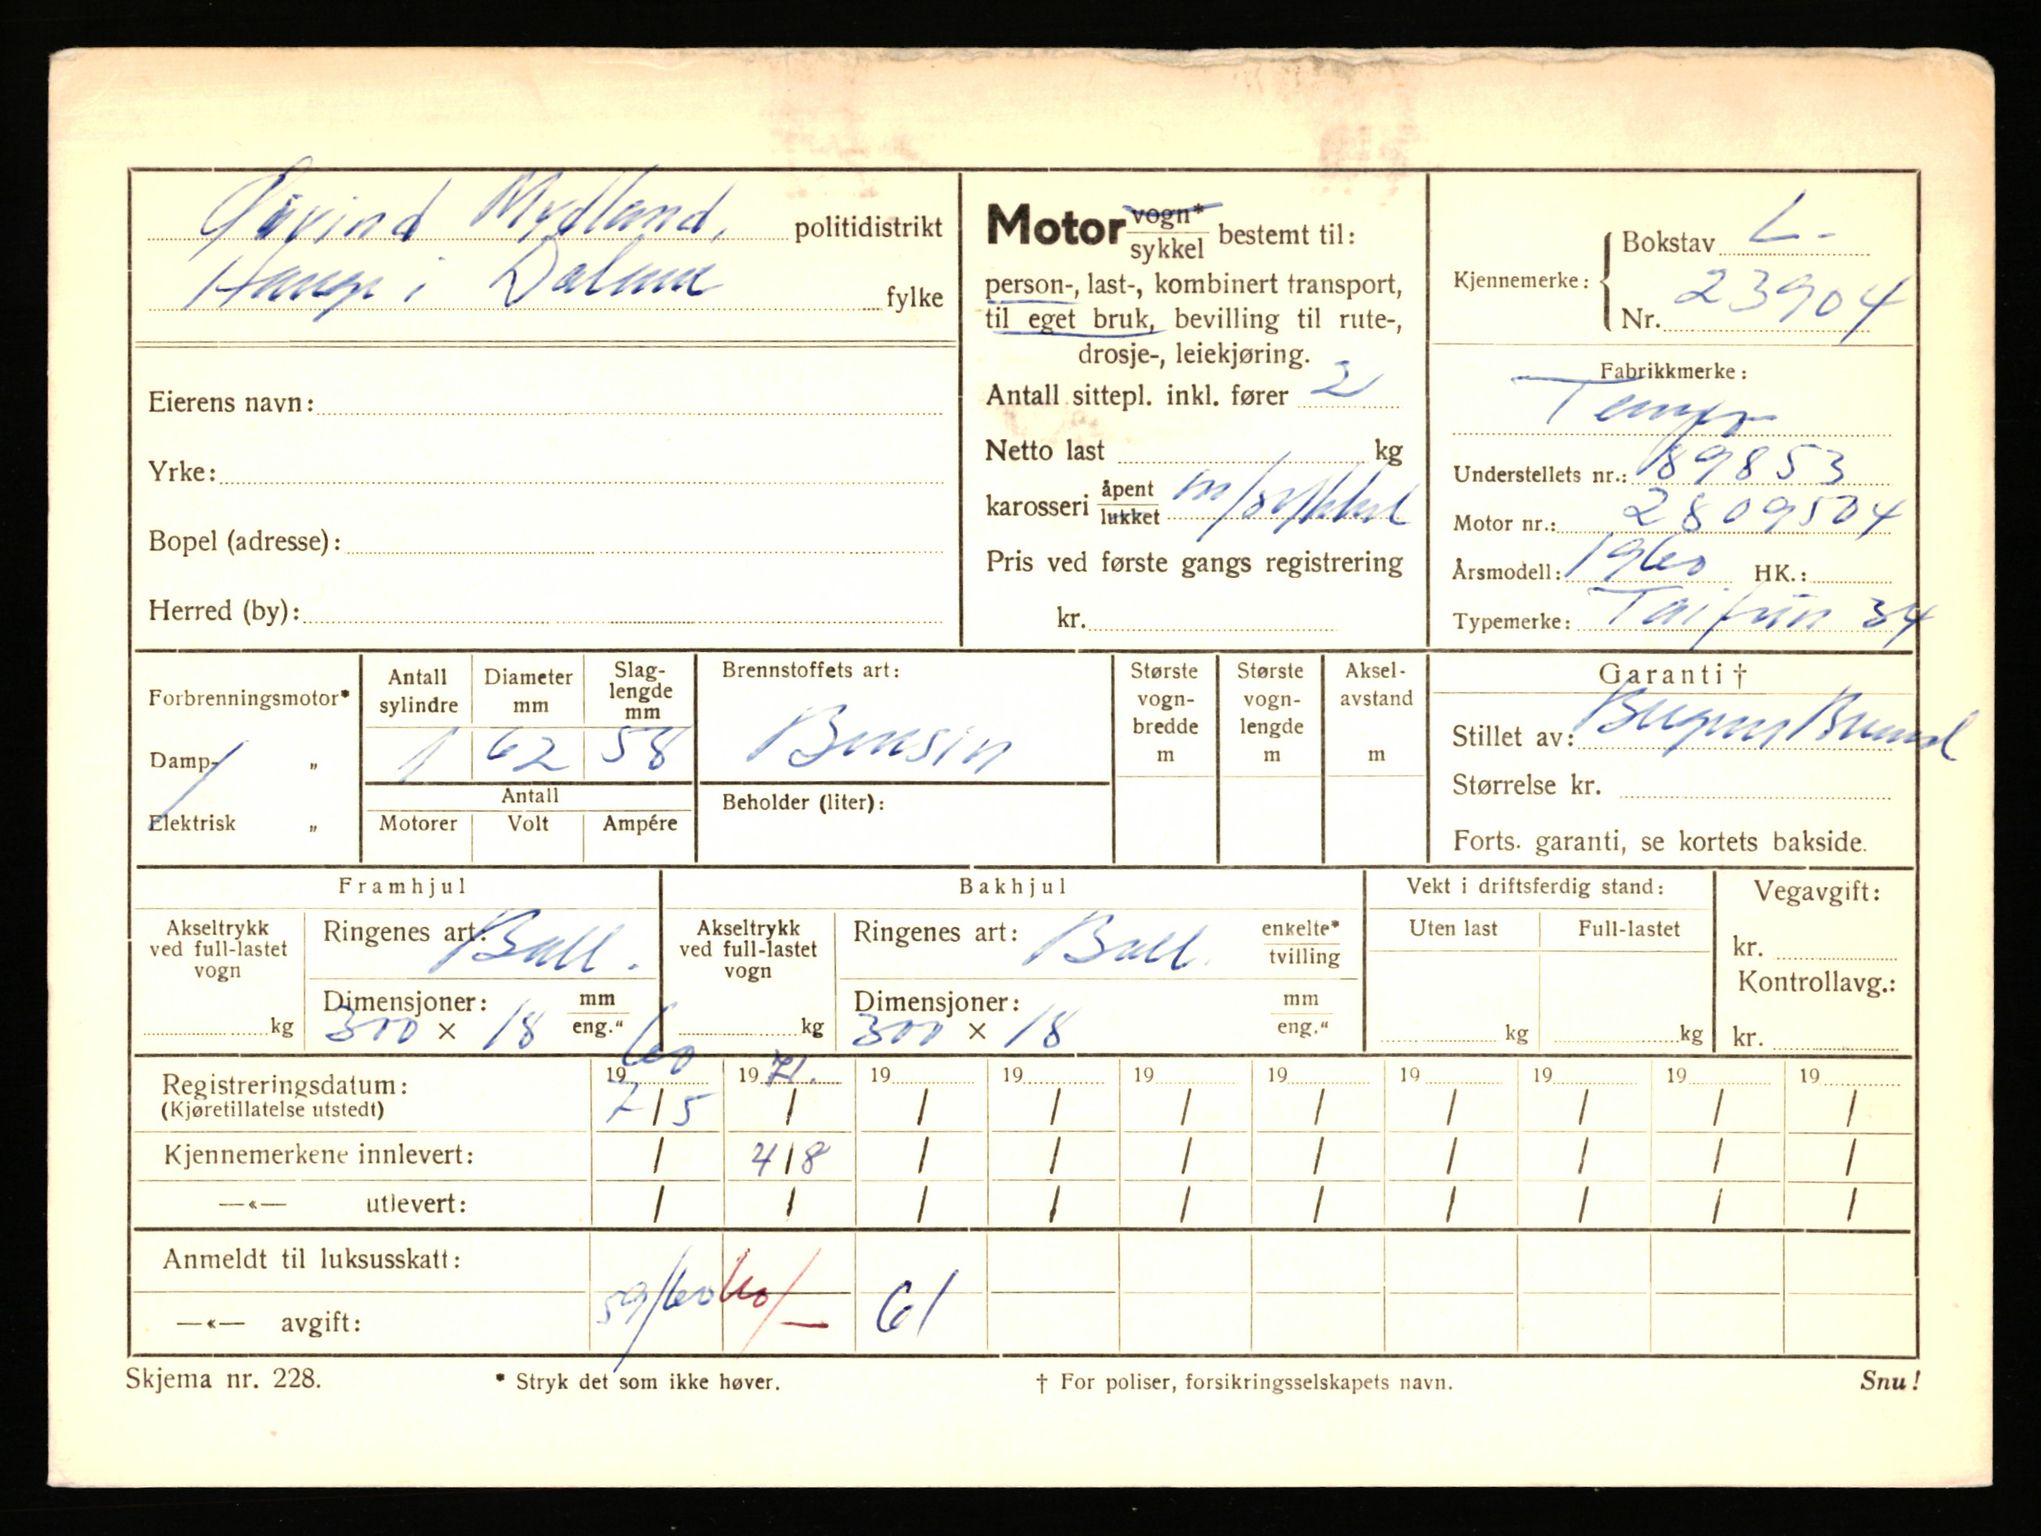 Øivind Mydland, politidistrikt
Hauge i Dalane fylke
Eierens navn:
Yrke:
Bopel (adresse):
Herred (by):
Motor vogn* sykkel bestemt til:
person-, last-, kombinert transport,
til eget bruk, bevilling til rute-,
drosje-, leiekjøring.
Antall sittepl. inkl. fører 2
Netto last kg
karosseri åpent lukket m/sykkel
Pris ved første gangs registrering
kr.
Kjennemerke: Bokstav L-
Nr. 23904
Fabrikkmerke:
Tempo
Understellets nr.: 189853
Motor nr.: 2809504
Årsmodell: 1960 HK.:
Typemerke: Taifun 34
Forbrenningsmotor*
Damp- „
Elektrisk „
Antall sylindre Diameter mm Slag-lengde mm
1 62 58
Antall
Motorer Volt Ampére
Brennstoffets art:
Bensin
Beholder (liter):
Største vogn-bredde m
Største vogn-lengde m
Aksel-avstand m
Garanti †
Stillet av:
Størrelse kr.
Forts. garanti, se kortets bakside.
Framhjul
Akseltrykk ved full-lastet vogn
kg
Ringenes art: Ball.
Dimensjoner: mm
300 × 18 eng."
Bakhjul
Akseltrykk ved full-lastet vogn
kg
Ringenes art: Ball. enkelte* tvilling
Dimensjoner: mm
300 × 18 eng."
Vekt i driftsferdig stand:
Uten last Full-lastet
kg kg
Vegavgift:
kr.
Kontrollavg.:
kr.
Registreringsdatum: 1960 1971. 19 19 19 19 19 19 19 19
(Kjøretillatelse utstedt) 7/5 / / / / / / / / /
Kjennemerkene innlevert: / 4/8 / / / / / / / /
—«— utlevert: / / / / / / / / / /
Anmeldt til luksusskatt:
—«— avgift: 59/60 60/— 61
Skjema nr. 228. * Stryk det som ikke høver. † For poliser, forsikringsselskapets navn. Snu!